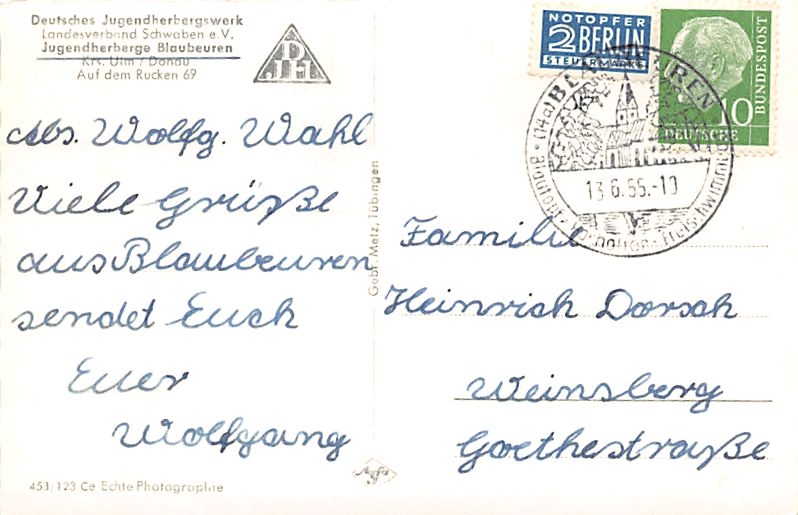 Deutsches Jugendherbergswerk
Landesverband Schwaben e.V.
Jugendherberge Blaubeuren
Krs. Ulm / Donau
Auf dem Rucken 69
DJH
Abs. Wolfg. Wahl
Viele Grüße
aus Blaubeuren
sendet Euch
Euer
Wolfgang
453/123 Ce Echte Photographie
Gebr. Metz, Tübingen
NOTOPFER
2 BERLIN
STEUERMARKE
10
DEUTSCHE
BUNDESPOST
(14a) BLAUBEUREN
13.6.55.-10
Familie
Heinrich Dorsch
Weinsberg
Goethestraße